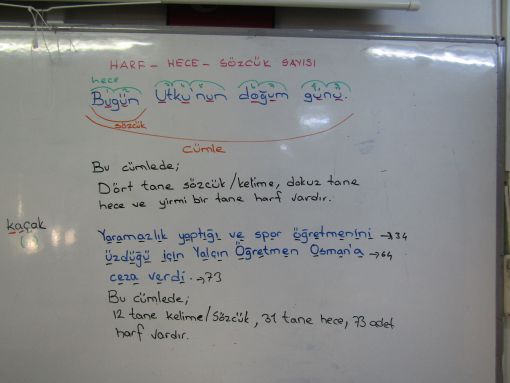 HARF - HECE - SÖZCÜK SAYISI
hece
Bugün Utku'nun doğum günü.
sözcük
CÜMLE
Bu cümlede;
Dört tane sözcük/kelime, dokuz tane
hece ve yirmi bir tane harf vardır.
kaçak
Yaramazlık yaptığı ve spor öğretmenini → 34
üzdüğü için Yalçın Öğretmen Osman'a → 64
ceza verdi. → 73
Bu cümlede;
12 tane kelime/sözcük, 31 tane hece, 73 adet
harf vardır.